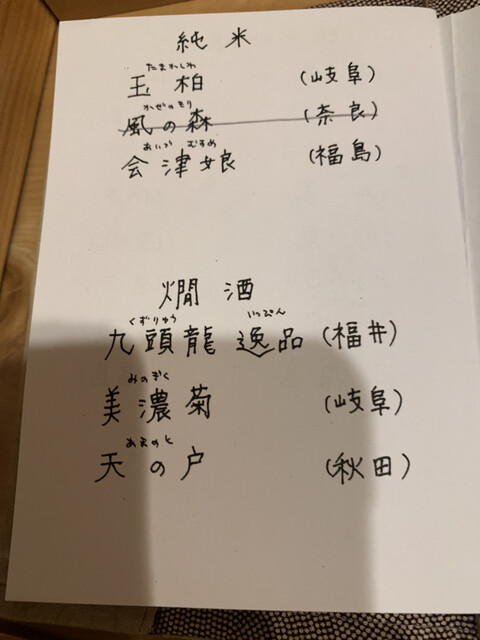 純米
たまかしわ
玉柏 (岐阜)
かぜのもり
風の森 (奈良)
あいづ むすめ
会津娘 (福島)
燗酒
くずりゅう いっぴん
九頭龍 逸品 (福井)
みのぎく
美濃菊 (岐阜)
あまのと
天の戸 (秋田)